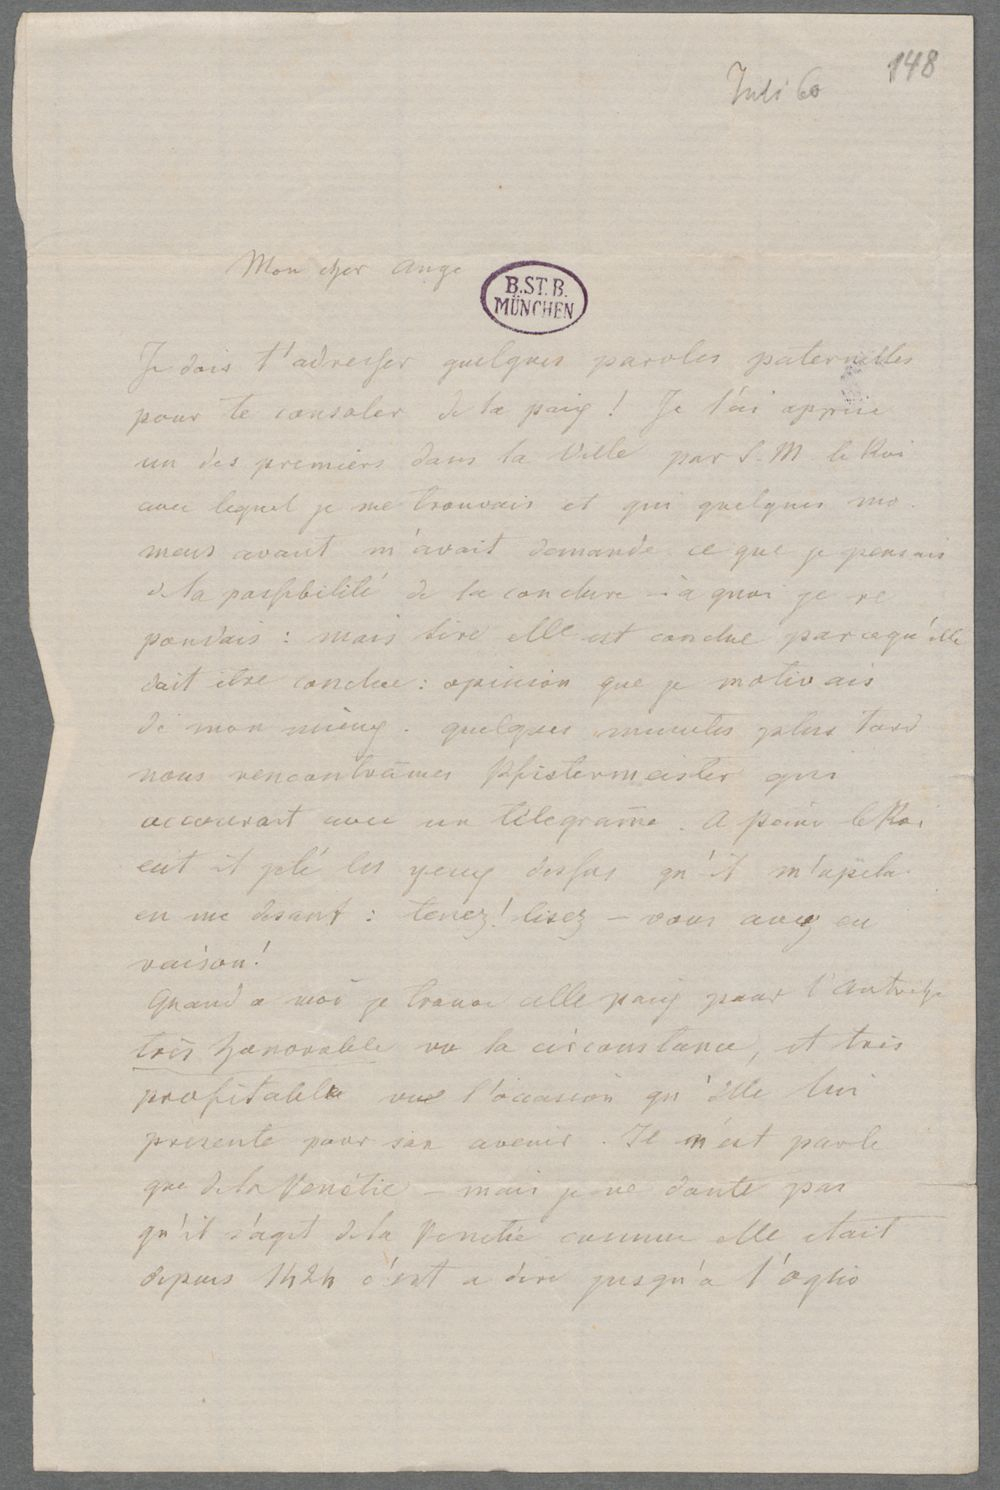 148
Juli 60
Mon cher Ange
B.ST.B.
MÜNCHEN
Je dois t'adresser quelques paroles paternelles
pour te consoler de la paix ! Je l'ai apprise
un des premiers dans la Ville par S. M. le Roi
avec lequel je me trouvais et qui quelques mo-
mens avant m'avait demandé ce que je pensais
de la possibilité de la conclure - à quoi je re
pondais : mais Sire elle est conclue parcequ'elle
doit etre conclue : opinion que je motivais
de mon mieux . quelques minutes plus tard
nous rencontrâmes Pfistermeister qui
accourait avec un télegram̄e . A peine le Roi
eut il jeté les yeux dessus qu'il m'apela
en me disant : tenez ! lisez – vous avez eu
raison !
Quand a moi je trouve cette paix pour l'Autriche
très honorable vu la circonstance, et très
profitable vue l'occasion qu'elle lui
presente pour son avenir . Il n'est parlé
que de la Venétie – mais je ne doute pas
qu'il s'agit de la Venetie comme elle etait
depuis 1424 c'est a dire jusqu'a l'Oglio